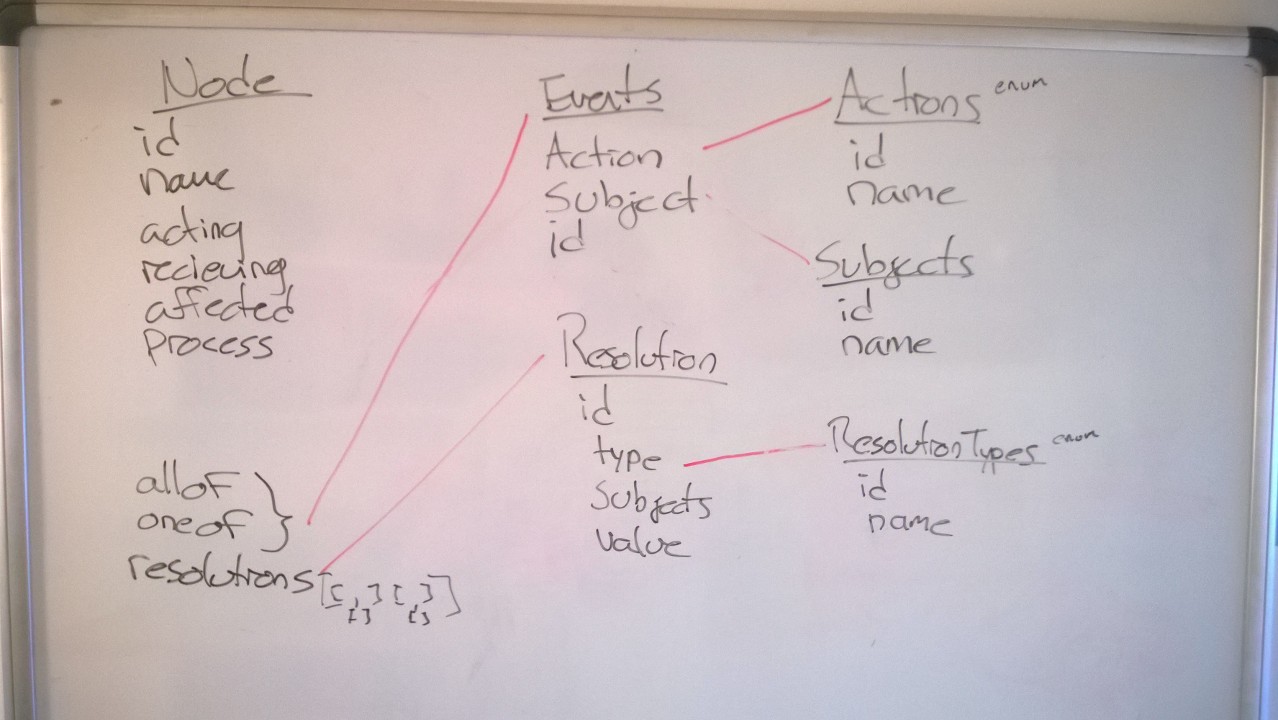 Node
id
name
acting
recieving
affected
process
allof
oneof
resolutions [[,][]  [,][]]
Events
Action
Subject
id
Resolution
id
type
Subjects
value
Actions enum
id
name
Subjects
id
name
ResolutionTypes enum
id
name